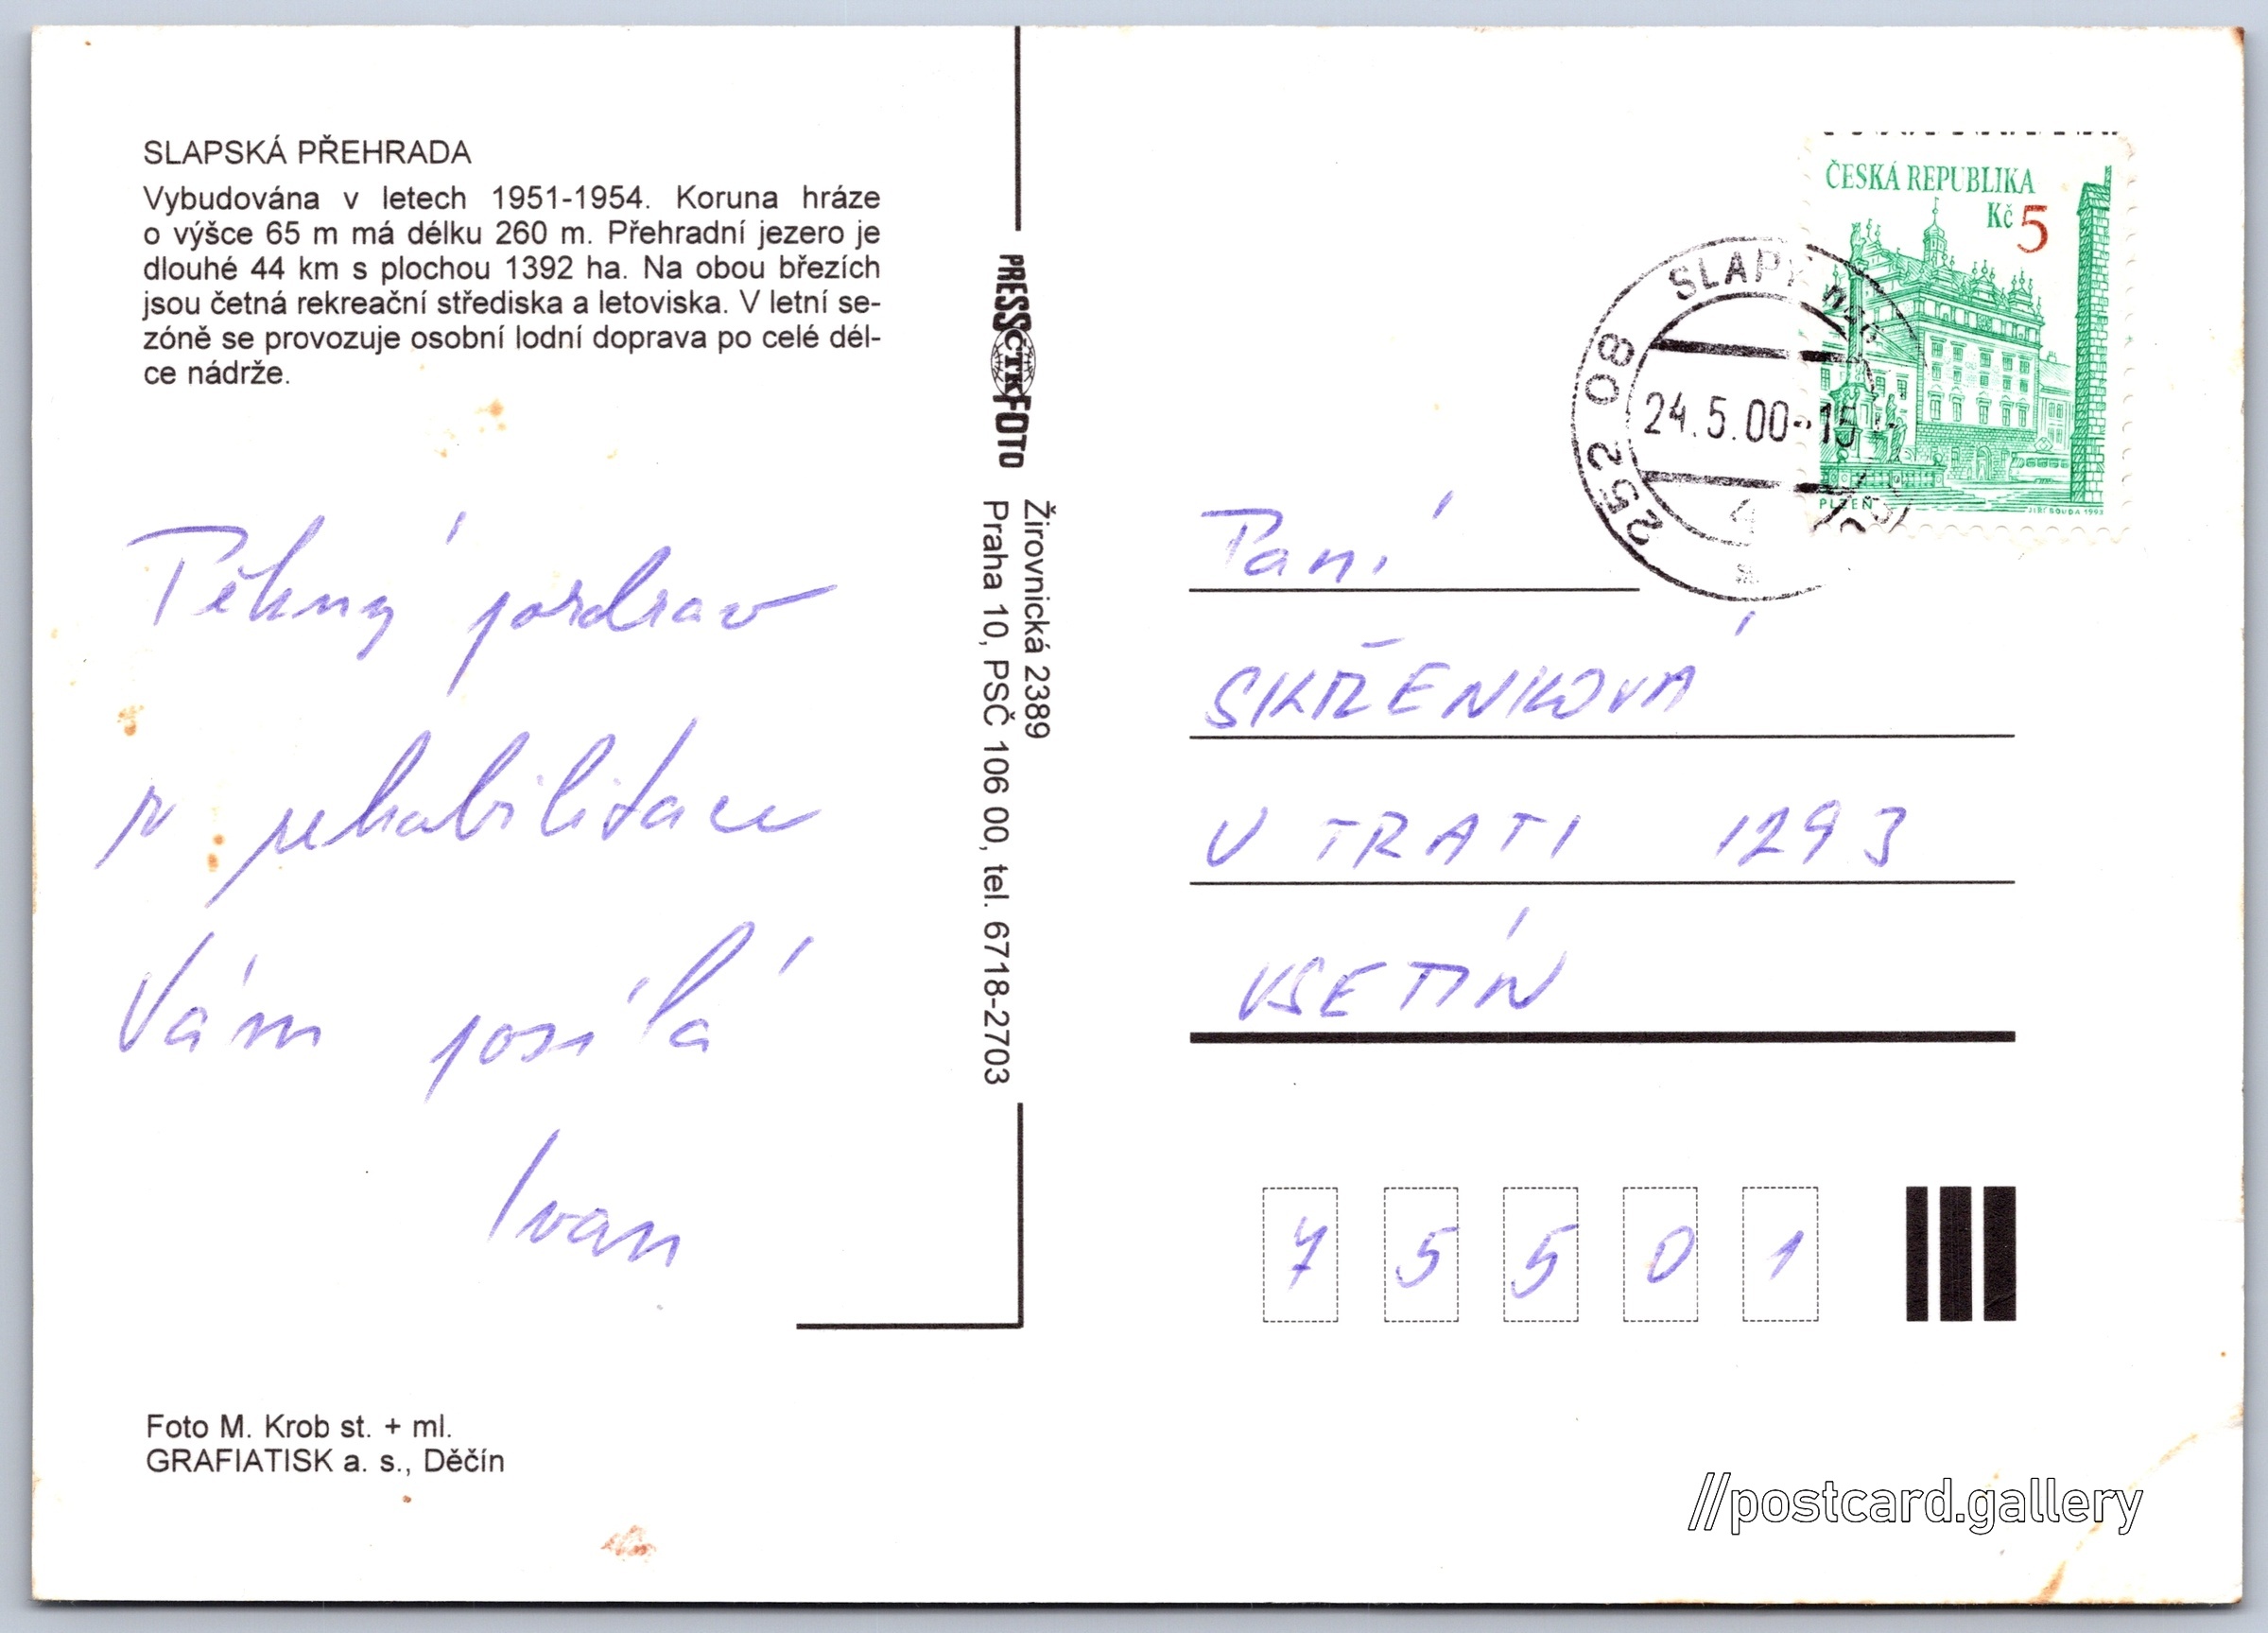 SLAPSKÁ PŘEHRADA
Vybudována v letech 1951-1954. Koruna hráze
o výšce 65 m má délku 260 m. Přehradní jezero je
dlouhé 44 km s plochou 1392 ha. Na obou březích
jsou četná rekreační střediska a letoviska. V letní se-
zóně se provozuje osobní lodní doprava po celé dél-
ce nádrže.
Pěkný pozdrav
z rehabilitace
Vám posílá
Ivan
Foto M. Krob st. + ml.
GRAFIATISK a. s., Děčín
PRESS ČTK FOTO
Žirovnická 2389
Praha 10, PSČ 106 00, tel. 6718-2703
ČESKÁ REPUBLIKA
Kč 5
PLZEŇ
JIŘÍ BOUDA 1993
252 08
24.5.00-15
4
Paní
SKŘENKOVÁ
U TRATI 1293
VSETÍN
7 5 5 0 1
//postcard.gallery